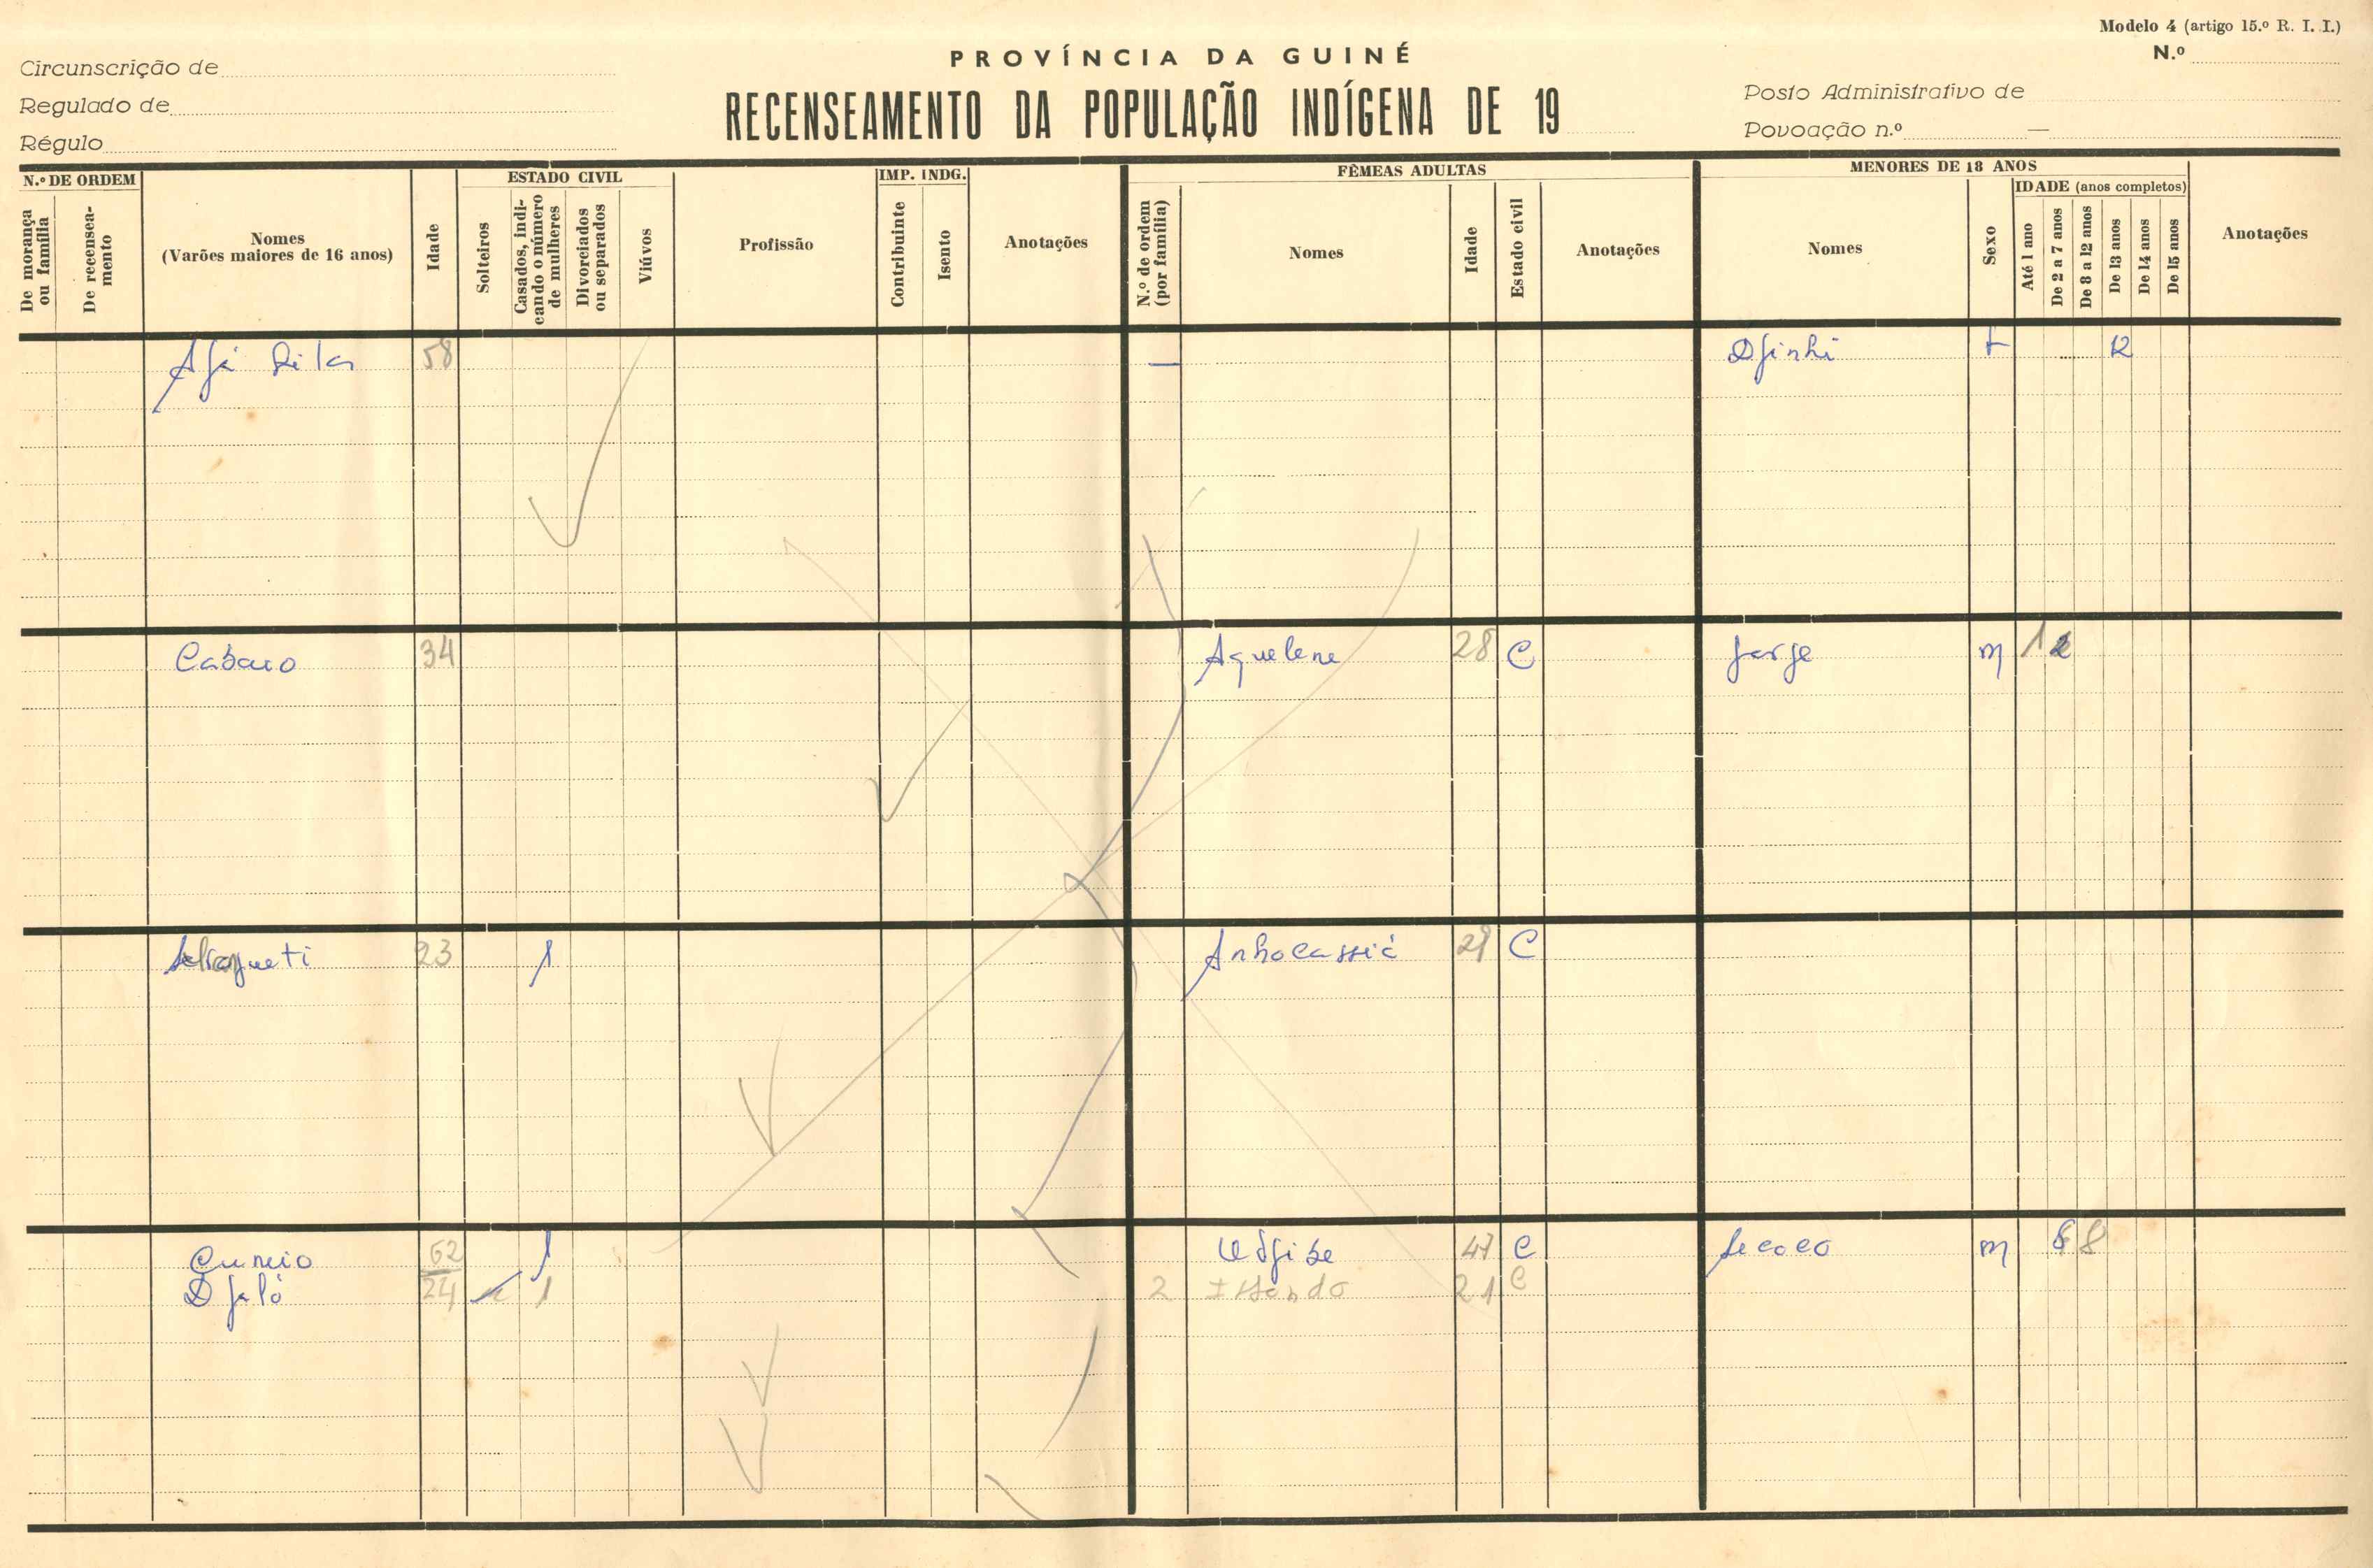 Modelo 4 (artigo 15.º R. I. I.)
PROVÍNCIA DA GUINÉ
N.º
Circunscrição de
Regulado de
Régulo
RECENSEAMENTO DA POPULAÇÃO INDÍGENA DE 19
Posto Administrativo de
Povoação n.º —
N.º DE ORDEM
De morança ou família
De recensea-mento
Nomes
(Varões maiores de 16 anos)
Idade
ESTADO CIVIL
Solteiros
Casados, indi-cando o número de mulheres
Divorciados ou separados
Viúvos
Profissão
IMP. INDG.
Contribuinte
Isento
Anotações
FÊMEAS ADULTAS
N.º de ordem (por família)
Nomes
Idade
Estado civil
Anotações
MENORES DE 18 ANOS
Nomes
Sexo
IDADE (anos completos)
Até 1 ano
De 2 a 7 anos
De 8 a 12 anos
De 13 anos
De 14 anos
De 15 anos
Anotações
58 — Djinhi f 12
34 Aquelene 28 C Jorge m 1
23 1 C
62 1 47 C m 8
Djaló 24 1 2 21 C